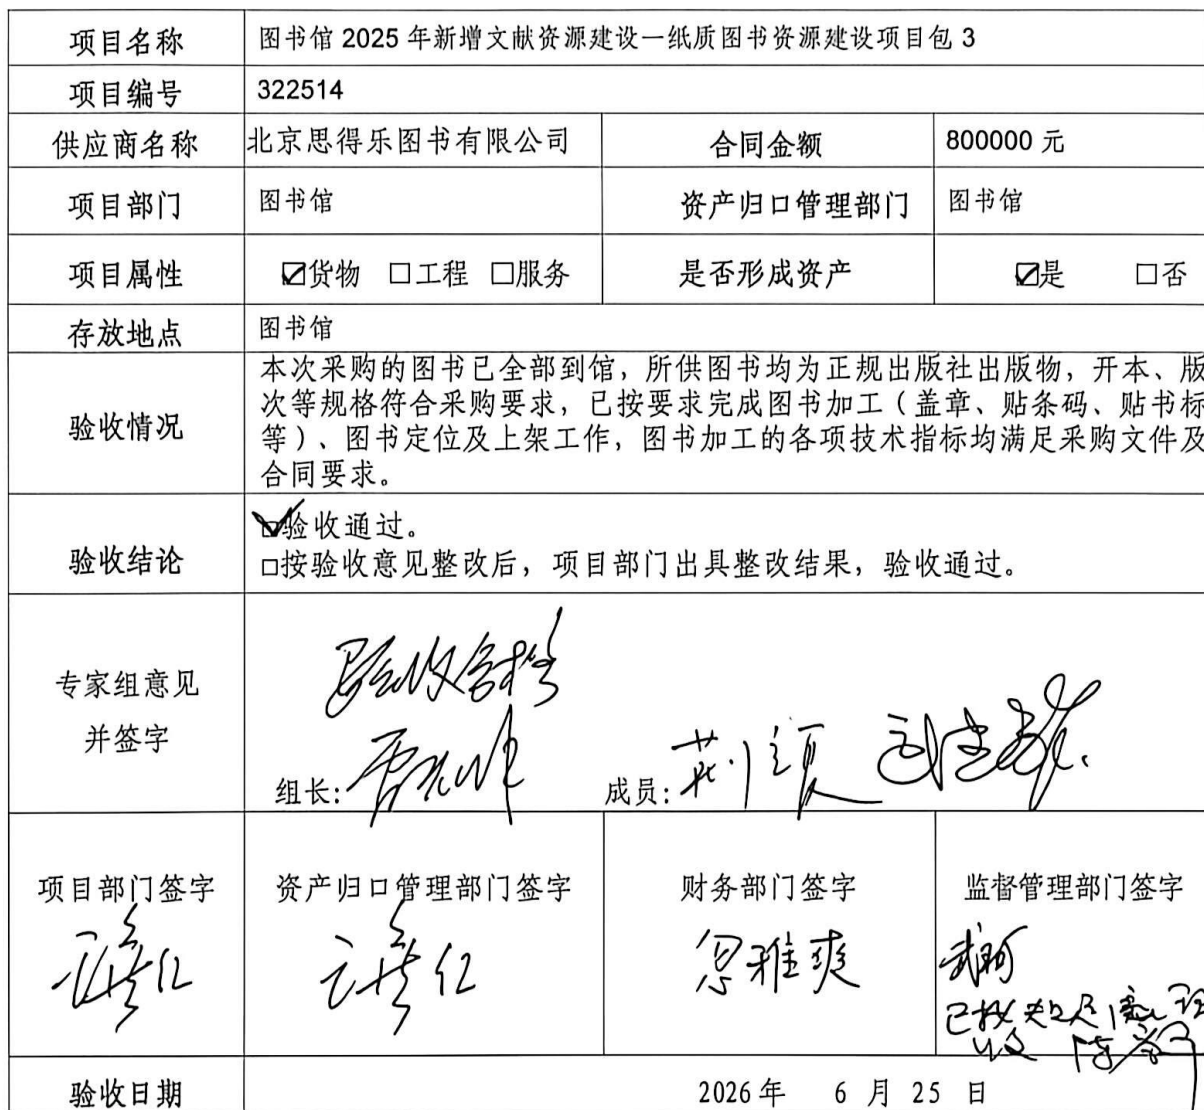 项目名称 图书馆 2025 年新增文献资源建设—纸质图书资源建设项目包 3
项目编号 322514
供应商名称 北京思得乐图书有限公司 合同金额 800000 元
项目部门 图书馆 资产归口管理部门 图书馆
项目属性 ☑货物 □工程 □服务 是否形成资产 ☑是 □否
存放地点 图书馆
验收情况
本次采购的图书已全部到馆，所供图书均为正规出版社出版物，开本、版
次等规格符合采购要求，已按要求完成图书加工（盖章、贴条码、贴书标
等）、图书定位及上架工作，图书加工的各项技术指标均满足采购文件及
合同要求。
验收结论
☑验收通过。
□按验收意见整改后，项目部门出具整改结果，验收通过。
专家组意见
并签字
验收合格
组长： 成员：
项目部门签字 资产归口管理部门签字 财务部门签字 监督管理部门签字
验收日期 2026 年 6 月 25 日